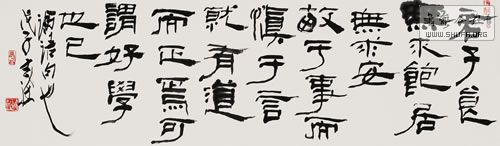 君子食
無求飽居
無求安
敏于事而
慎于言
就有道
而正焉可
謂好學
也已
論語句也